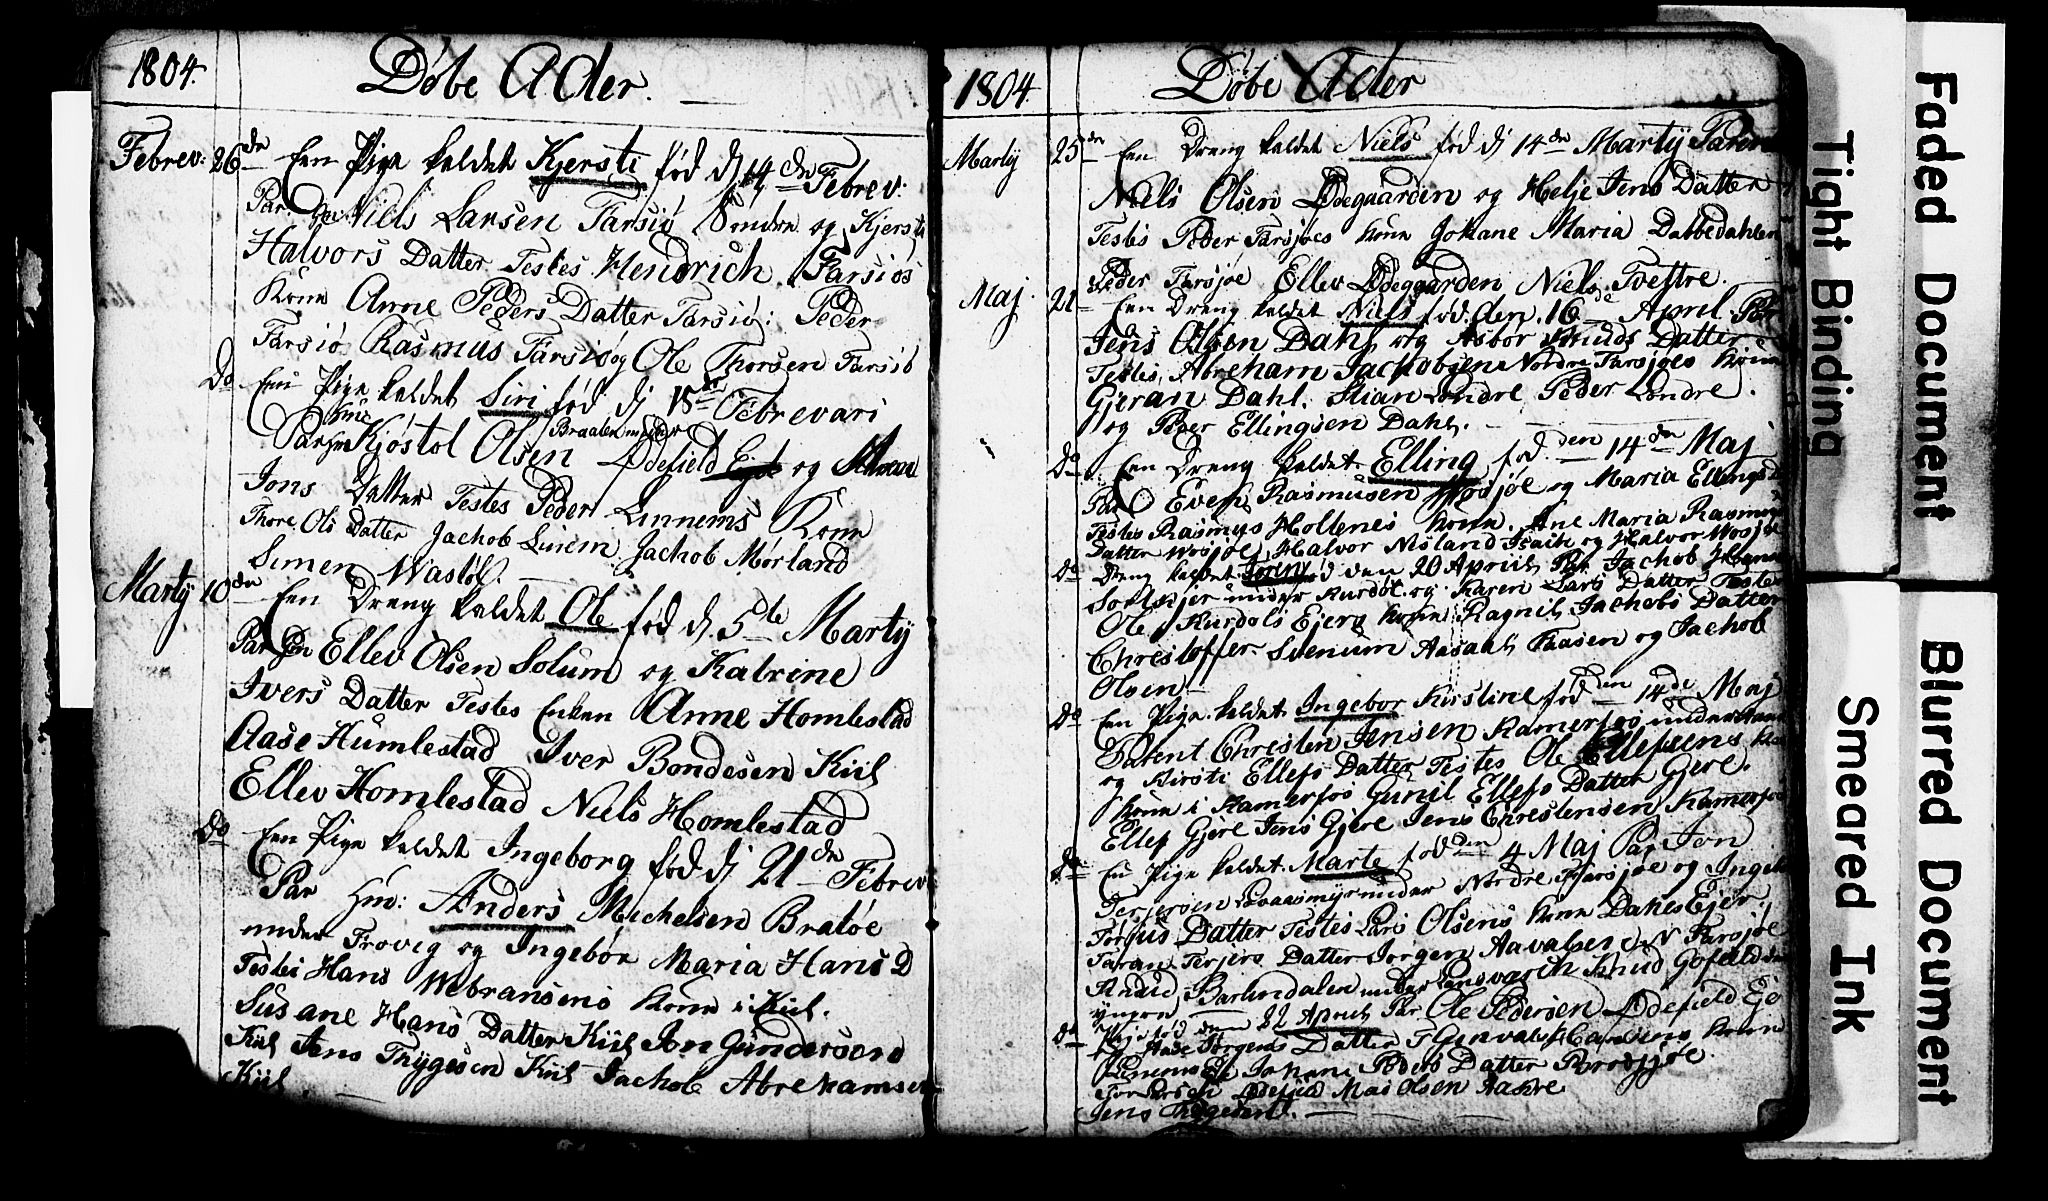 1804. Døbe Acter.
Febrev: 26 dn Een Pige kaldet Kjersti fød d 14 dn Febrev:
Par: Niels Larsen Farsiø Søndre og Kjersti
Halvors Datter Testes Hendrich Farsiøs
Kone Anne Peders Datter Farsiø: Peder
Farsiø Rasmus Farsiø og Ole Thorsen Farsiø
Do Een Pige kaldet Siri fød d 15 Febrevari
Par Kjøstol Olsen Ødefield og
Jons Datter Testes Peder Linnems Kone
Thore Ols Datter Jachob Linem Jachob Mørland
Simen Wastøl.
Marty 10 dn Een Dreng kaldet Ole fød d 5te Marty
Par Ellev Olsen Solum og Katrine
Ivers Datter Testes Enken Anne Homlestad
Aase Humlestad Iver Bondesen Kiil
Ellev Homlestad Niels Homlestad
Do Een Pige kaldet Ingeborg fød d 21 dn Febrev
Par Hm: Anders Michelsen Bratøe
under Frovig og Ingebør Maria Hans D
Testes Hans Webransens Kone i Kiil.
Susane Hans Datter Kiil Jon Gundersen
Kiil Jens Thygesen Kiil Jachob Abrehamsen
Kiil
1804. Døbe Acter
Marty 25 dn Een Dreng kaldet Niels fød d 14 dn Marty
Niels Olsen Ødegaarden og Helje Jens Datter
Testes Peder Farsjøes Kone Johane Maria Dabbedahlen
Peder Farsjøe Ellev Ødegaarden Niels Tvettre.
Maj. 21 Een Dreng kaldet Niels fød den 16 de April. Par
Jens Olsen Dahl og Asbør Knuds Datter
Testes, Abreham Jachobsens Nordre Farsjøes Kone
Gjeran Dahl. Stian Londre Peder Londre.
og Peder Ellingsen Dahl.
Do Een Dreng kaldet Elling fød den 14 dn Maj
Par Even Rasmusen Wosjøe og Maria Ellings D
Testes Rasmus Holtenes Kone. Ane Maria Rasmus
Datter Wosjøe, Halvor Nisland Isach og Halvor Wosjøe
Do Dreng kaldet Søren fød den 20 April Par Jachob
under Kurdøl og Karen Lars Datter Testes
Ole Kurdøls Ejers Kone Ragnil Jachobs Datter
Christoffer Svenum Aasant Haasen og Jachob
Olsen
Do Een Pige kaldet Ingebor Kirstine fød den 14 de Maj
Parent Christen Jensen Kamerfos
og Kirsti Ellefs Datter Testes Ole Ellefsens
Kone i Kamerfos Gunil Ellefs Datter Gjere.
Ellef Gjere Jens Gjere Jens Christensen Kamerfos
Do En Pige kaldet Marte fød den 4 Maj Par Jon
Terjersen under Nordre Farsjøe og
Torjus Datter Testes Lars Olsens Kone Dahls Ejer,
Taran Terjers Datter Jørgen Aavalsen N Farsjøe
Barlindalen under Landvarch Knud Gofeld
yngre
Do fød den 22 April Par Ole Pedersen Ødefield
Aase Jørgens Datter T Hansens Kone
Johane Peders Datter
Mas Olsen Aakre
Jens Thygesen.
Faded Document
Tight Binding
Blurred Document
Smeared Ink